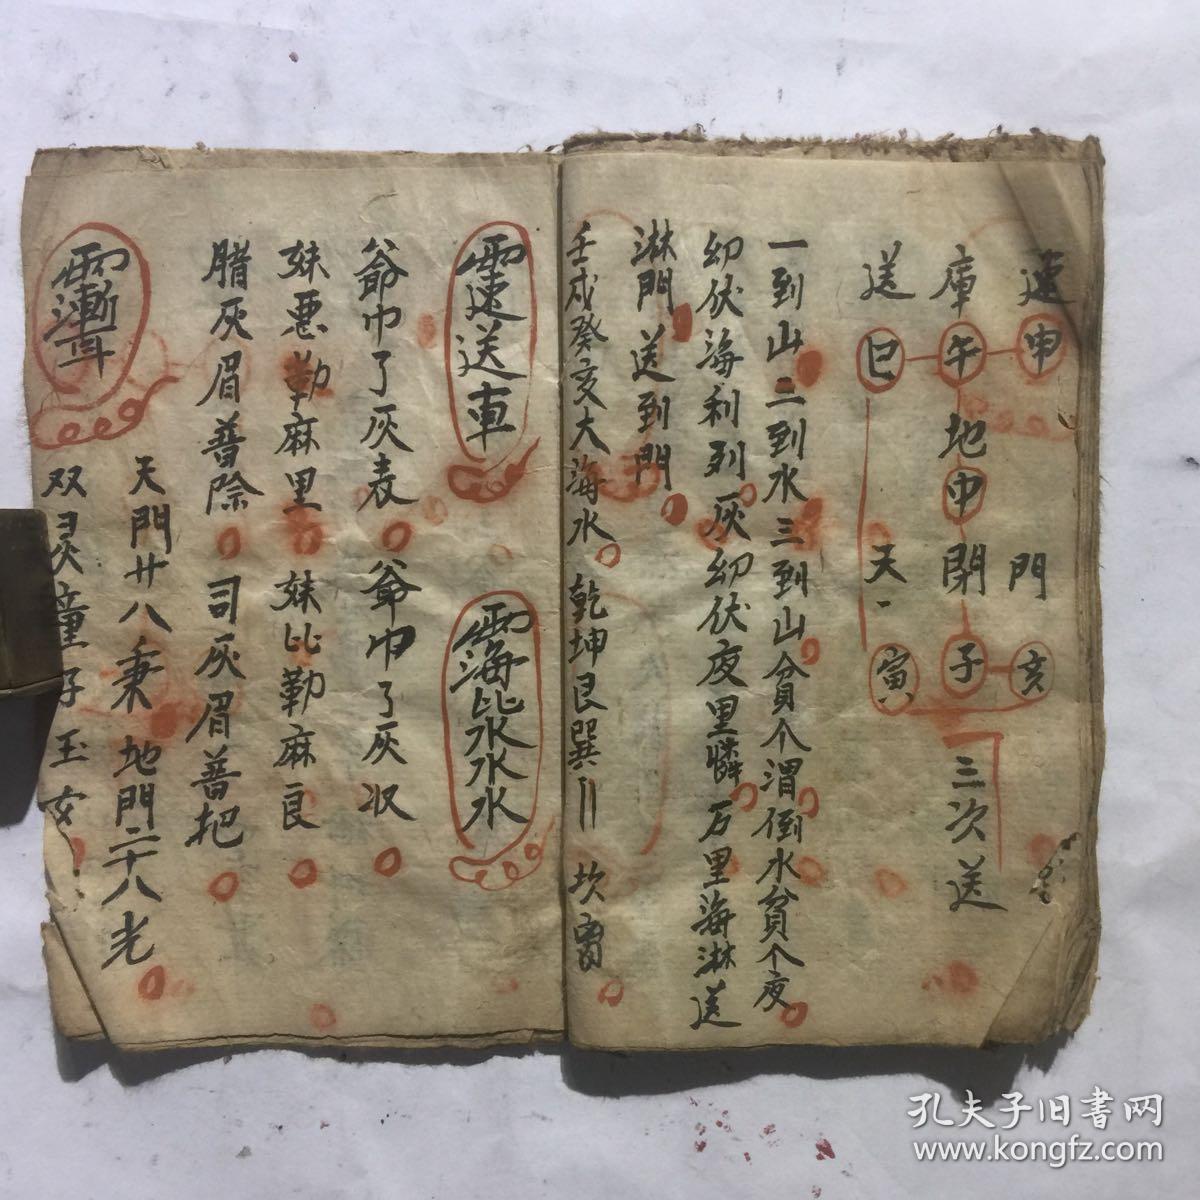 速申門亥
庫午地中閉子三次送
送巳天一寅
一到山二到水三到山貧个渭倒水貧个夜
幼伏海利到灰幼伏夜里憐万里海淋送
淋門送到門
壬戌癸亥大海水乾坤艮巽〢坎
速送車
海比水水水
爺巾了灰表爺巾了灰収
妹悪勒麻里妹比勒麻良
腊灰眉普除司灰眉普把
天門廿八乗地門二十八光
双灵童子玉女
孔夫子旧書网
www.kongfz.com